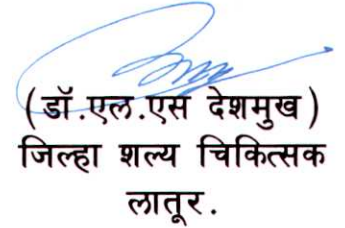 (डॉ.एल.एस देशमुख)
जिल्हा शल्य चिकित्सक
लातूर.